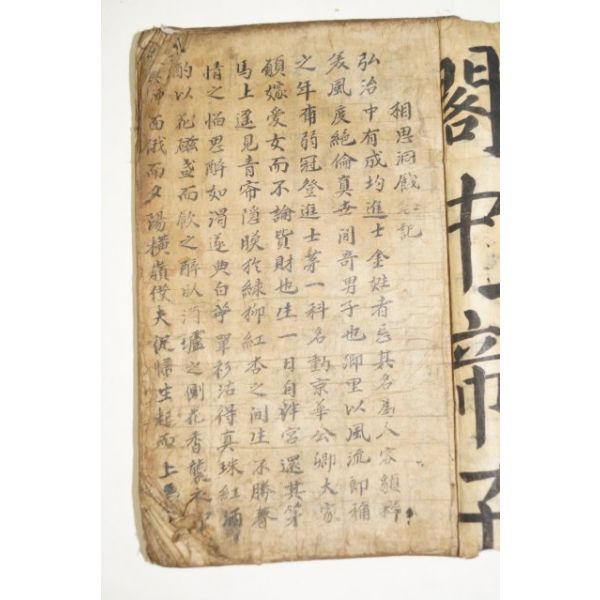 閣中帝子
相思洞餞 記
弘治中有成均進士金姓者忘其名爲人容貌粹
美風度絶倫真世間奇男子也鄕里以風流郎稱
之年甫弱冠登進士第一科名動京華公卿大家
願嫁愛女而不論貨財也生一日自泮宮還其第
馬上遙見青帘隱映於綠柳紅杏之間生不勝春
情之惱思醉如渴遂典白苧單衫沽得真珠紅酒
酌以花磁盞而飲之醉臥酒壚之側花香襲衣
面俄而夕陽橫嶺僕夫促歸生起而上